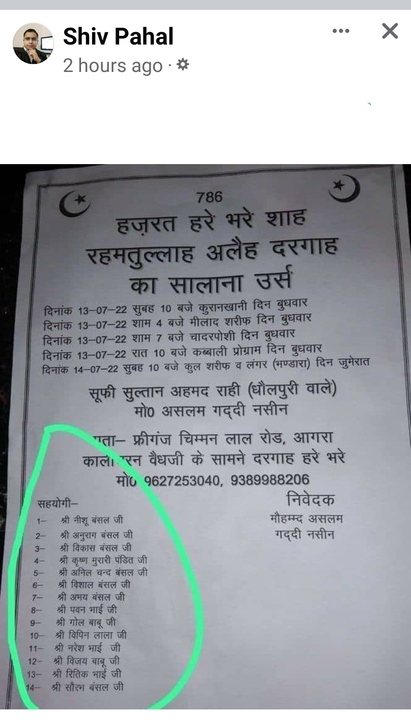 Shiv Pahal
2 hours ago
786
हज़रत हरे भरे शाह
रहमतुल्लाह अलैह दरगाह
का सालाना उर्स
दिनांक 13-07-22 सुबह 10 बजे कुरानखानी दिन बुधवार
दिनांक 13-07-22 शाम 4 बजे मीलाद शरीफ दिन बुधवार
दिनांक 13-07-22 शाम 7 बजे चादरपोशी दिन बुधवार
दिनांक 13-07-22 रात 10 बजे कब्बाली प्रोग्राम दिन बुधवार
दिनांक 14-07-22 सुबह 10 बजे कुल शरीफ व लंगर (भण्डारा) दिन जुमेरात
सूफी सुल्तान अहमद राही (धौलपुरी वाले)
मो0 असलम गद्दी नसीन
पता- फ्रीगंज चिम्मन लाल रोड, आगरा
काली वैधजी के सामने दरगाह हरे भरे
मो0 9627253040, 9389988206
सहयोगी-
1- श्री नीशू बंसल जी
2- श्री अनुराग बंसल जी
3- श्री विकास बंसल जी
4- श्री कृष्ण मुरारी पंडित जी
5- श्री अनिल चन्द बंसल जी
6- श्री विशाल बंसल जी
7- श्री अभय बंसल जी
8- श्री पवन भाई जी
9- श्री गोल बाबू जी
10- श्री विपिन लाला जी
11- श्री नरेश भाई जी
12- श्री विजय बाबू जी
13- श्री रितिक भाई जी
14- श्री सौरभ बंसल जी
निवेदक
मौहम्म्द असलम
गद्दी नसीन